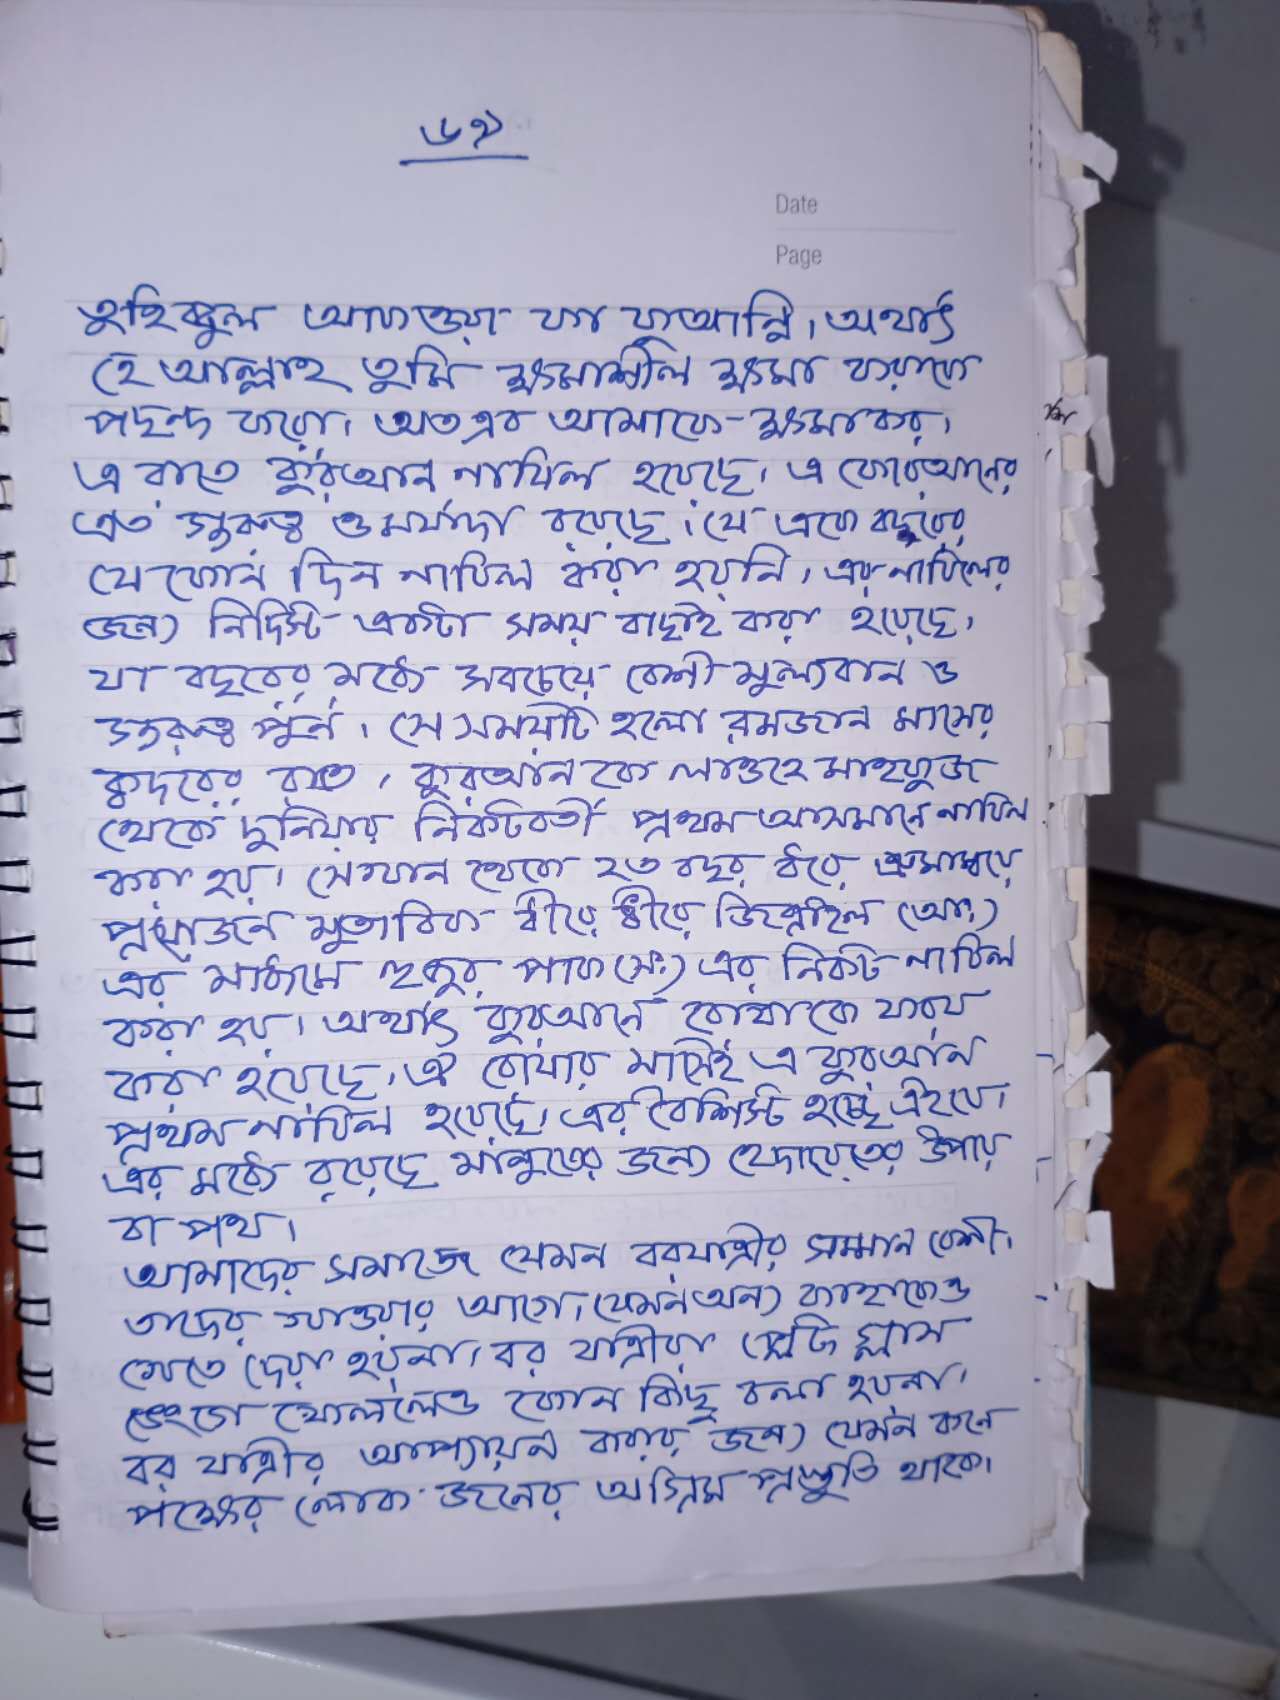 ৬৭
Date
Page
তুহিব্বুল আফওয়া ফা ফুআন্নি, অর্থাৎ
হে আল্লাহ তুমি ক্ষমাশীল ক্ষমা করাকে
পছন্দ করো। অতএব আমাকে ক্ষমা কর।
এ রাতে কুরআন নাযিল হয়েছে। এ কোরআনের
এত গুরুত্ব ও মর্যাদা রয়েছে। যে একে বছরের
যে কোন দিন নাযিল করা হয়নি। এর নাযিলের
জন্য নির্দিস্ট একটা সময় বাছাই করা হয়েছে।
যা বছরের মধ্যে সবচেয়ে বেশী মুল্যবান ও
গুরুত্ব পুর্ন। সে সময়টি হলো রমজান মাসের
ক্বদরের রাত। কুরআন কে লাওহে মাহফুজ
থেকে দুনিয়ার নিকটবর্তী প্রথম আসমানে নাযিল
করা হয়। সেখান থেকে ২৩ বছর ধরে ক্রমান্বয়ে
প্রয়োজন মুতাবিক ধীরে ধীরে জিব্রাইল (আঃ)
এর মাধ্যমে হুজুর পাক (সঃ) এর নিকট নাযিল
করা হয়। অর্থাৎ কুরআনে রোযাকে ফরয
করা হয়েছে। ঐ রোযার মাসেই এ কুরআন
প্রথম নাযিল হয়েছে। এর বৈশিস্ট হচ্ছে এইযে।
এর মধ্যে রয়েছে মানুষের জন্য হেদায়েতের উপায়
বা পথ।
আমাদের সমাজে যেমন বরযাত্রীর সম্মান বেশী।
তাদের খাওয়ার আগে। যেমন অন্য কাহাকেও
খেতে দেয়া হয়না। বর যাত্রীরা প্লেট গ্লাস
ভেংগে ফেললেও কোন কিছু বলা হয়না।
বর যাত্রীর আপ্যায়ন করার জন্য যেমন কনে
পক্ষের লোক জনের অগ্রিম প্রস্তুতি থাকে।